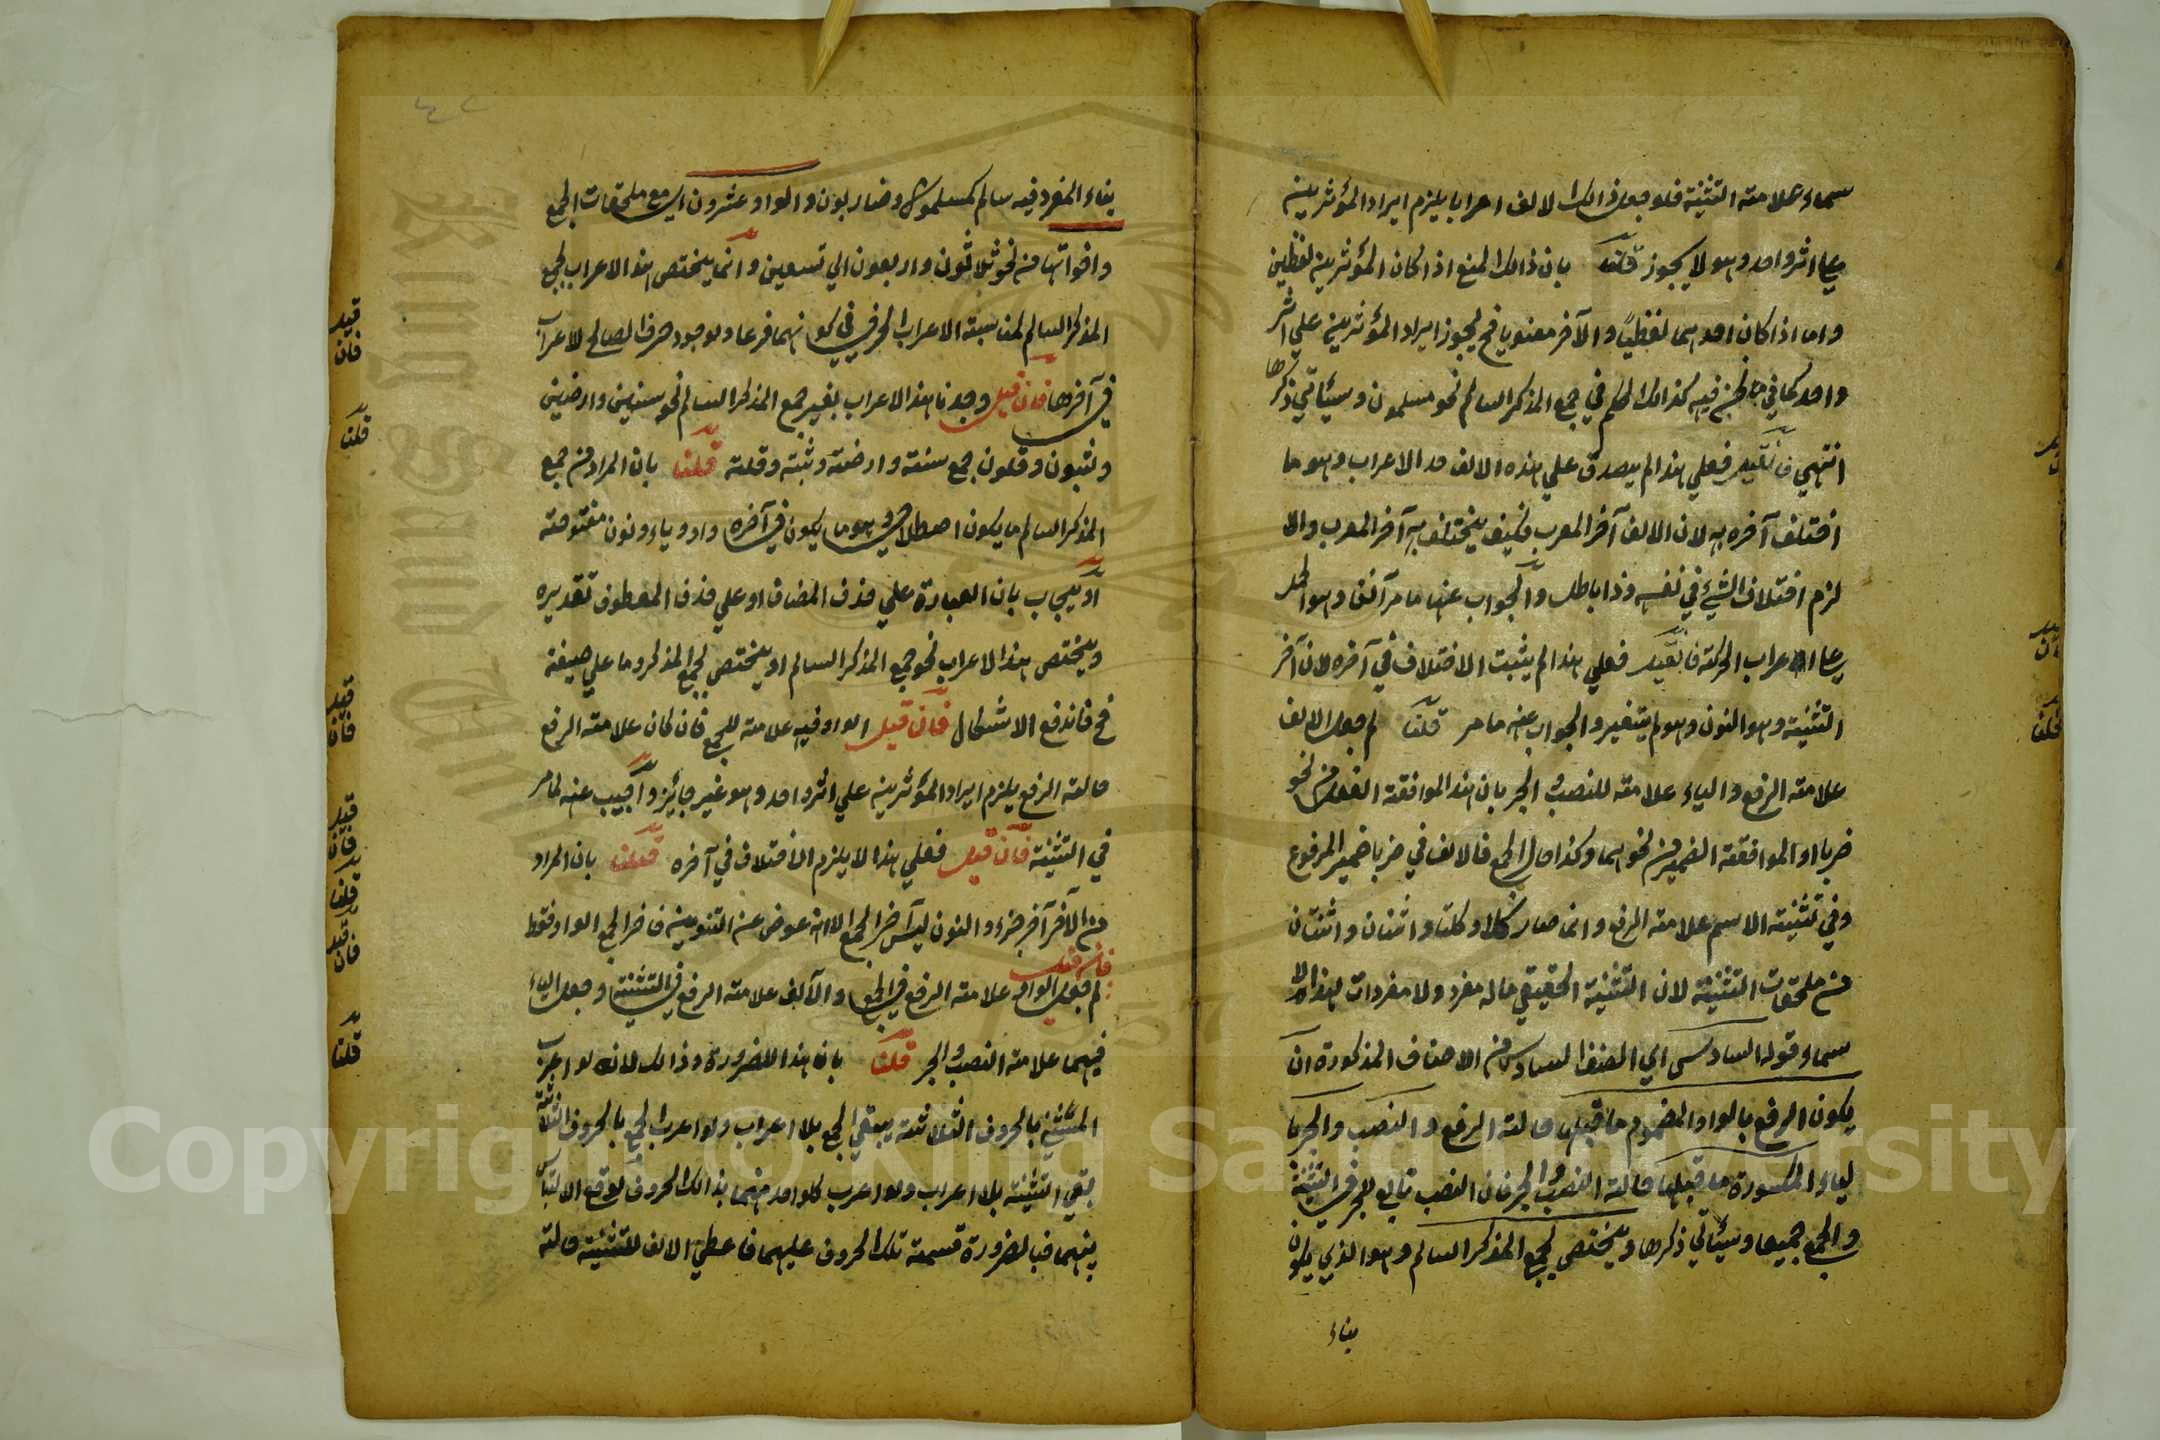 سماء علامته التثنية فلو جعل ذالك الالف اعرابا يلزم ايراد المؤثرين
علي اثر واحد وهو لا يجوز قلت بان ذالك المنع اذا كان المؤثرين لفظين
واما اذا كان احدهما لفظيا والآخر معنويا فح يجوز ايراد المؤثرين علي اثر
واحد كما في ما نحن فيه كذالك الحكم في جمع المذكر السالم نحو مسلمون وسيئاتي ذكرها
انتهي فان قيل فعلي هذا لم يصدق علي هذه الالف حد الاعراب وهو ما
اختلف آخره به لان الالف آخر المعرب فكيف يختلف به آخر المعرب والا
لزم اختلاف الشيء في نفسه وذا باطل والجواب عنها ما مر آنفا وهو الحمل
علي الاعراب الحركة فان قيل فعلي هذا لم يثبت الاختلاف في آخره لان آخر
التثنية وهو النون وهو لم يتغير والجواب عنه ما مر قلنا لم جعل الالف
علامته الرفع والياء علامته للنصب والجر بان هذا لموافقته الفعل من نحو
ضربا او الموافقته الضمير من نحو هما وكذا حال الجمع فالالف في ضربا ضمير المرفوع
وفي تثنيته الاسم علامته الرفع وانما صار كلا وكلتا واثنان واثنتان
من ملحقات التثنية لان التثنية الحقيقي ماله مفرد ولا مفردات لهذا الا
سماء وقوله السادس اي الصنف السادس من الاصناف المذكورة ان
يكون الرفع بالواو المضموم ما قبلها حالته الرفع والنصب والجر با
لياء المكسورة ما قبلها حالته النصب والجر فان النصب تابع للجر في التثنية
والجمع جميعا وسيئاتي ذكرها ويختص بجمع المذكر السالم وهو الذي يكون
بناء
بناء المفرد فيه سالم كمسلمون وضاربون والواو عشرون اي مع ملحقات الجمع
واخواتها من نحو ثلاثون واربعون الي تسعين وانما يختص هذا الاعراب بجمع
المذكر السالم لمناسبته الاعراب الحرفي في كونهما فرعا ولوجود حرف الصالح لاعراب
في آخرها فان قيل وجدنا هذا الاعراب بغير جمع المذكر السالم نحو سنين وارضين
وثبون وقلون جمع سنته وارضته وثبته وقلته قلنا بان المراد من جمع
المذكر السالم ما يكون اصطلاحي وهو ما يكون في آخره واو وياء ونون مفتوحته
او يجاب بان العبارة علي حذف المضاف او علي حذف المعطوف تقديره
ويختص هذا الاعراب نحو جمع المذكر السالم او يختص بجمع المذكر وما علي صيغته
فح فاندفع الاشكال فان قيل الواو فيه علامته للجمع فان كان علامته الرفع
حالته الرفع يلزم ايراد المؤثرين علي اثر واحد وهو غير جائز واجيب عنه لما مر
في التثنية فان قيل فعلي هذا لا يلزم الاختلاف في آخره قلنا بان المراد
من الآخر آخر جزء والنون ليس آخر الجمع لانه عوض عن التنوين فاخر الجمع الواو فقط
فان قيل
لم جعل الواو علامته الرفع في الجمع والالف علامته الرفع في التثنية وجعل الياء
فيهما علامته النصب والجر قلنا بان هذا للضرورة وذالك لانه لو اعرب
المثني بالحروف الثلاثته يبقي الجمع بلا اعراب ولو اعرب الجمع بالحروف الثلاثة
بقي التثنية بلا اعراب ولو اعرب كلواحد منهما بذالك الحروف لوقع الالتباس
بينهما فبالضرورة قسمته تلك الحروف عليهما فاعطي الالف للتثنية حالته
قيل
فان
قلنا
قيل
فان
قيل
فان
قلنا
قيل
فان
قلنا
قلنا
Copyright © King Saud University